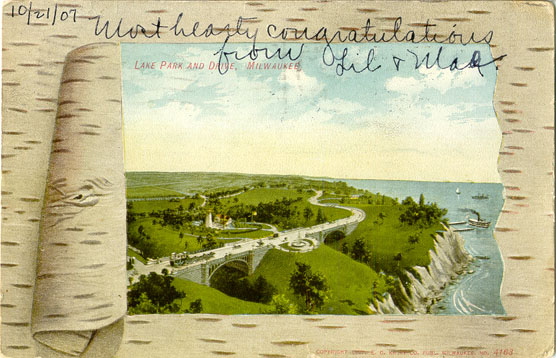 10/21/07
Most hearty congratulations
from Lil & Mae.
LAKE PARK AND DRIVE, MILWAUKEE.
COPYRIGHT
CO. PUBL. MILWAUKEE NO. 4103